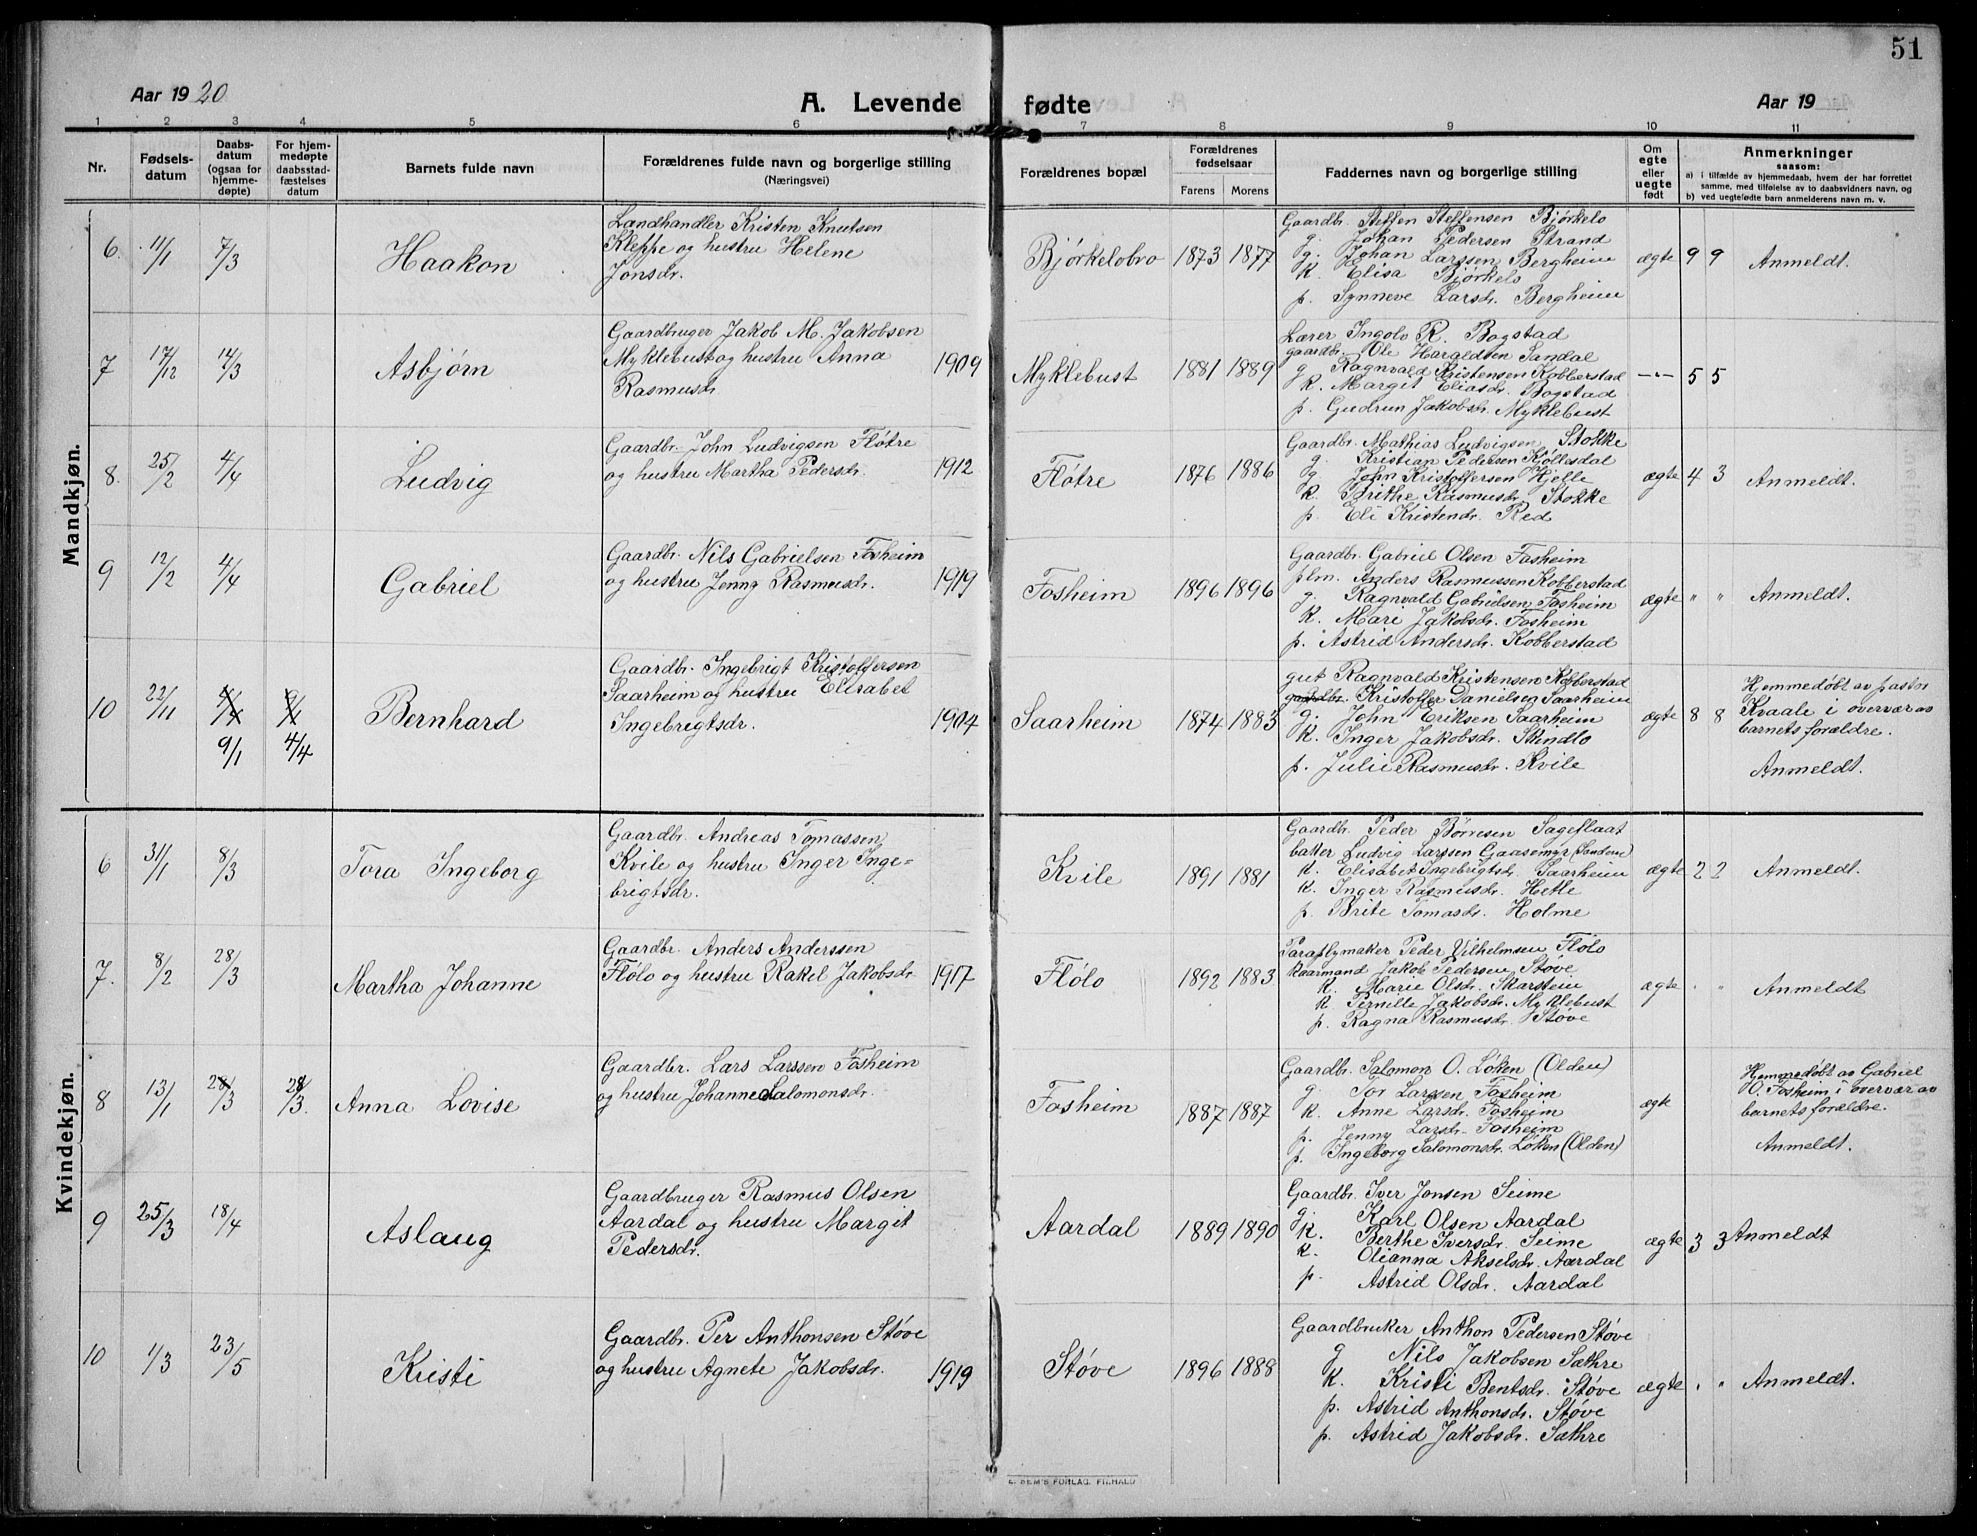 51
Aar 1920
A. Levende fødte
Aar 19
1 2 3 4 5 6 7 8 9 10 11
Nr.
Fødsels-
datum
Daabs-
datum
(ogsaa for
hjemme-
døpte)
For hjem-
medøpte
daabsstad-
fæstelses
datum
Barnets fulde navn
Forældrenes fulde navn og borgerlige stilling
(Næringsvei)
Forældrenes bopæl
Forældrenes
fødselsaar
Farens Morens
Faddernes navn og borgerlige stilling
Om
egte
eller
uegte
født
Anmerkninger
saasom:
a) i tilfælde av hjemmedaab, hvem der har forrettet
samme, med tilføielse av to daabsvidners navn, og
b) ved uegtefødte barn anmelderens navn m. v.
Mandkjøn.
6. 11/1 7/3 Haakon
Landhandler Kristen Knutsen
Kleppe og hustru Helene
Jonsdr.
Bjørkelobro 1873 1877
Gaardbr. Steffen Steffensen Bjørkelo
g. Johan Pedersen Strand
g. Johan Larssen Bergheim
k. Elisa Bjørkelo
p. Synneve Larsdr. Bergheim
ægte 9 9 Anmeldt.
7 17/12 14/3 Asbjørn
Gaardbruger Jakob M. Jakobsen
Myklebust og hustru Anna 1909
Rasmusdr.
Myklebust 1881 1889
Lærer Ingolv R. Bogstad
gaardbr. Ole Haraldsen Sandal
g Ragnvald Kristensen Kobberstad
k. Margit Eliasdr. Bogstad
p. Gudrun Jakobsdr. Myklebust
—"— 5 5
8. 25/2 4/4 Ludvig
Gaardbr. John Ludvigsen Fløtre
og hustru Martha Pedersdr. 1912
Fløtre 1876 1886
Gaardbr. Mathias Ludvigsen Stokke
g. Kristian Pedersen Kollesdal
g John Kristoffersen Hjelle
k. Brithe Rasmusdr. Stokke
p. Eli Kristendr. Red
ægte 4 3 Anmeldt.
9 12/2 4/4 Gabriel
Gaardbr. Nils Gabrielsen Fosheim
og hustru Jenny Rasmusdr. 1919
Fosheim 1896 1896
Gaardbr. Gabriel Olsen Fosheim
plm. Anders Rasmussen Kobberstad
g. Ragnvald Gabrielsen Fosheim
k. Mari Jakobsdr. Fosheim
p. Astrid Andersdr. Kobberstad
ægte " " Anmeldt.
10 22/11 4/4 9/1 Bernhard
9/1 4/4
Gaardbr. Ingebrigt Kristoffersen
Saarheim og hustru Elisabet
Ingebrigtsdr. 1904
Saarheim 1874 1883
gut Ragnvald Kristensen Kobberstad
gaardbr. Kristoffer Danielseg Saarheim
g. John Eriksen Saarheim
k. Inger Jakobsdr. Skindlo
p. Julie Rasmusdr. Kvile
ægte 8 8
Hjemmedøbt av pastor
Kvaale i overvær av
barnets forældre.
Anmeldt.
Kvindekjøn.
6 31/1 8/3 Tora Ingeborg
Gaardbr. Andreas Tomassen
Kvile og hustru Inger Inge-
brigtsdr.
Kvile 1891 1881
Gaardbr. Peder Børresen Sageflaat
baker Ludvig Larssen Gaasemyr (Sandene)
k. Elisabet Ingebrigtsdr. Saarheim
k. Inger Rasmusdr. Hetle
p. Brite Tomasdr. Holme
ægte 2 2 Anmeldt.
7. 8/2 28/3 Martha Johanne
Gaardbr. Anders Anderssen
Flølo og hustru Rakel Jakobsdr. 1917
Flølo 1892 1883
Paraplymaker Peder Vilhelmsen Flølo
kaarmand Jakob Pedersen Støve
k. Marie Olsdr. Skarstein
k Pernille Jakobsdr. Myklebust
p. Ragna Rasmusdr. Støve
ægte " " Anmeldt
8 13/1 28/3 28/3. Anna Lovise
Gaardbr. Lars Larssen Fosheim
og hustru Johanne Salomonsdr.
Fosheim 1887 1887
Gaardbr. Salomon O. Løken (Olden)
g. Tor Larssen Fosheim
k. Anne Larsdr. Fosheim
p. Jenny Larsdr. Fosheim
p. Ingeborg Salomonsdr. Løken (Olden)
ægte
Hjemmedøbt av Gabriel
O. Fosheim i overvær av
barnets forældre.
Anmeldt.
9 25/3 18/4 Aslaug
Gaardbruger Rasmus Olsen
Aardal og hustru Margit
Pedersdr.
Aardal 1889 1890
Gaardbr. Iver Jonsen Seime
g. Karl Olsen Aardal
k. Berthe Iversdr. Seime
k. Olianna Akselsdr. Aardal
p. Astrid Olsdr. Aardal
ægte 3 3 Anmeldt
10 1/3 23/5 Kristi
Gaardbr. Per Anthonsen Støve
og hustru Agnete Jakobsdr. 1919
Støve 1896 1888
Gaardbruker Anthon Pedersen Støve
g Nils Jakobsen Sæthre
k. Kristi Bentsdr. Støve
p. Astrid Anthonsdr. Støve
p. Astrid Jakobsdr. Sæthre
ægte " " Anmeldt.